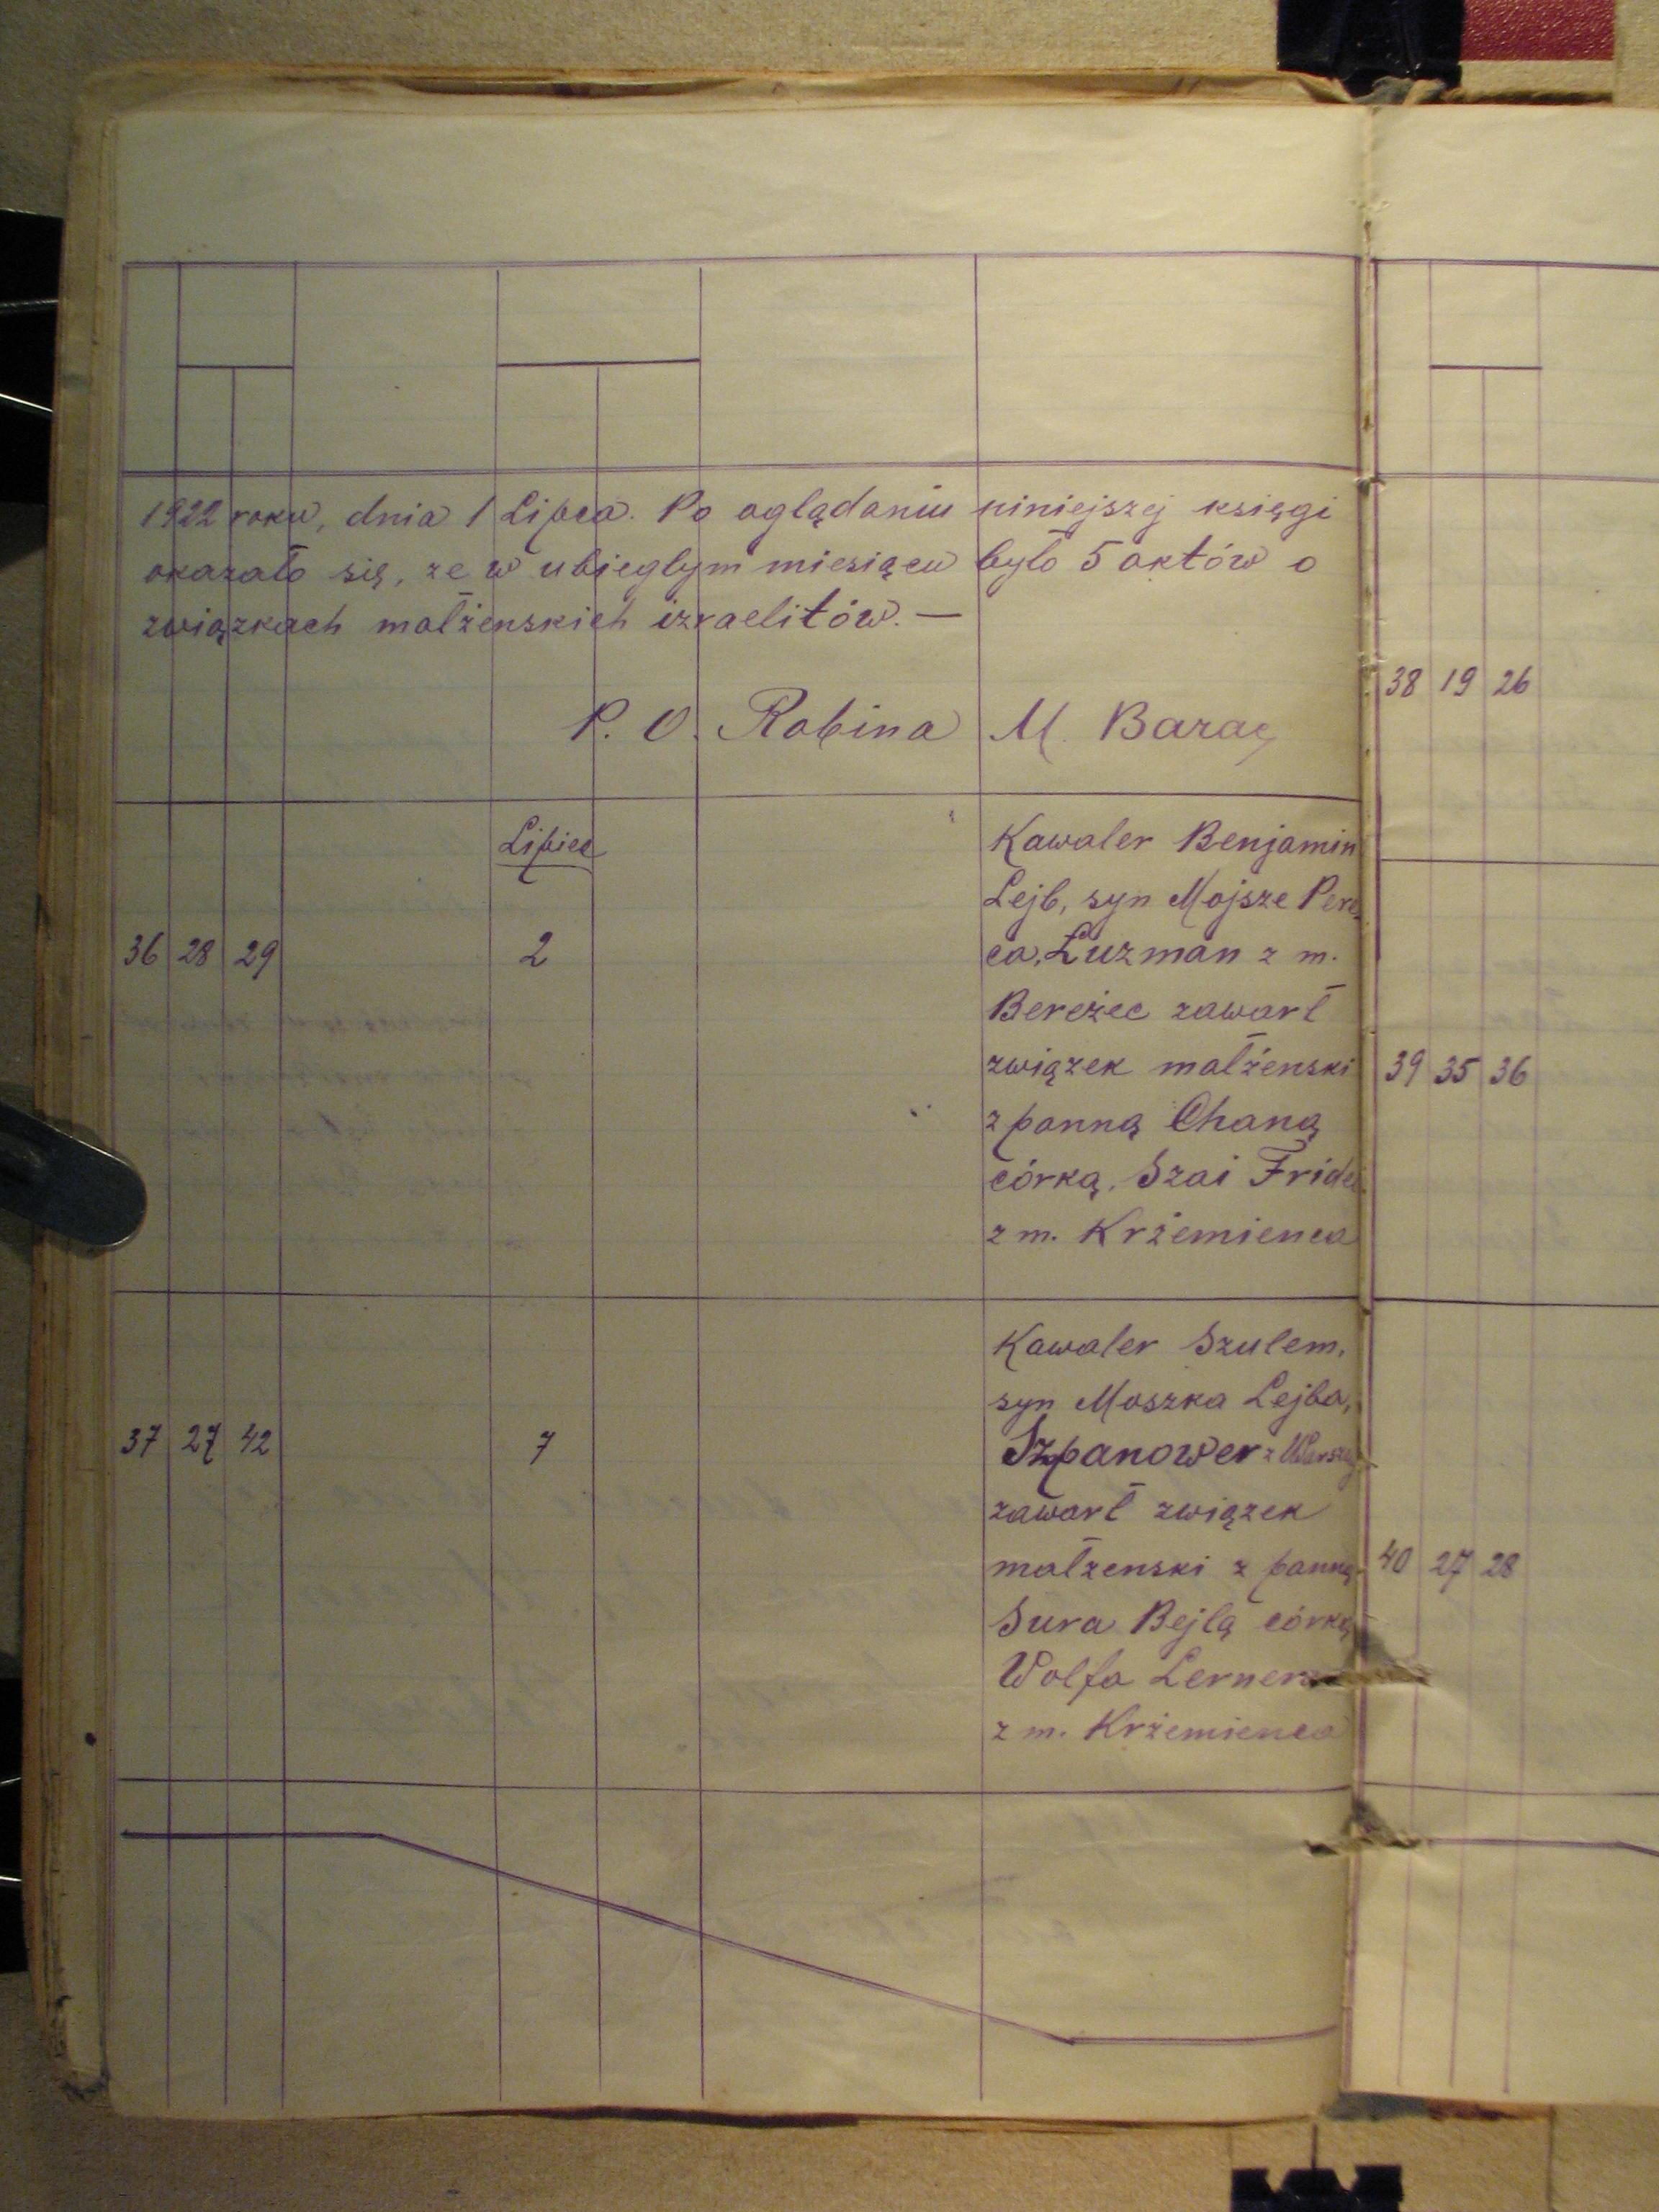 1922 roku, dnia 1 Lipca. Po oglądaniu niniejszej księgi
okazało się, że w ubiegłym miesiącu było 5 aktów o
związkach małżenskich izraelitów. —
P. O. Rabina M. Barac
Lipiec
Kawaler Benjamin
Lejb, syn Mojsze Pere
ca, Luzman z m.
36 28 29 2
Bereżec zawarł
związek małżenski
z panną Chaną
córką, Szai Fridel
z m. Krżemienca
Kawaler Szulem,
syn Moszka Lejba,
37 27 42 7
Szpanower z
zawarł związek
małżenski z panną
Sura Bejlą córką
Wolfa Lernera
z m. Krżemienca
38 19 26
39 35 36
40 27 28